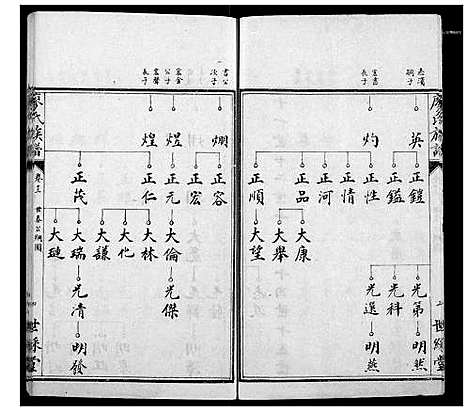 廖氏族譜
志漢
嗣子
英
正鎧
光第
明燕
正鎰
光科
宏書
長子
灼
正性
光選
明燕
正情
正河
正品
大康
大舉
正順
大望
世綵堂
書公
次子
烱
正容
正宏
宏金
公子
煜
正元
大倫
光傑
宏聲
長子
煌
正仁
大林
大化
大謙
正茂
大瑞
光清
明發
大璉
廖氏族譜
卷三
世綵堂